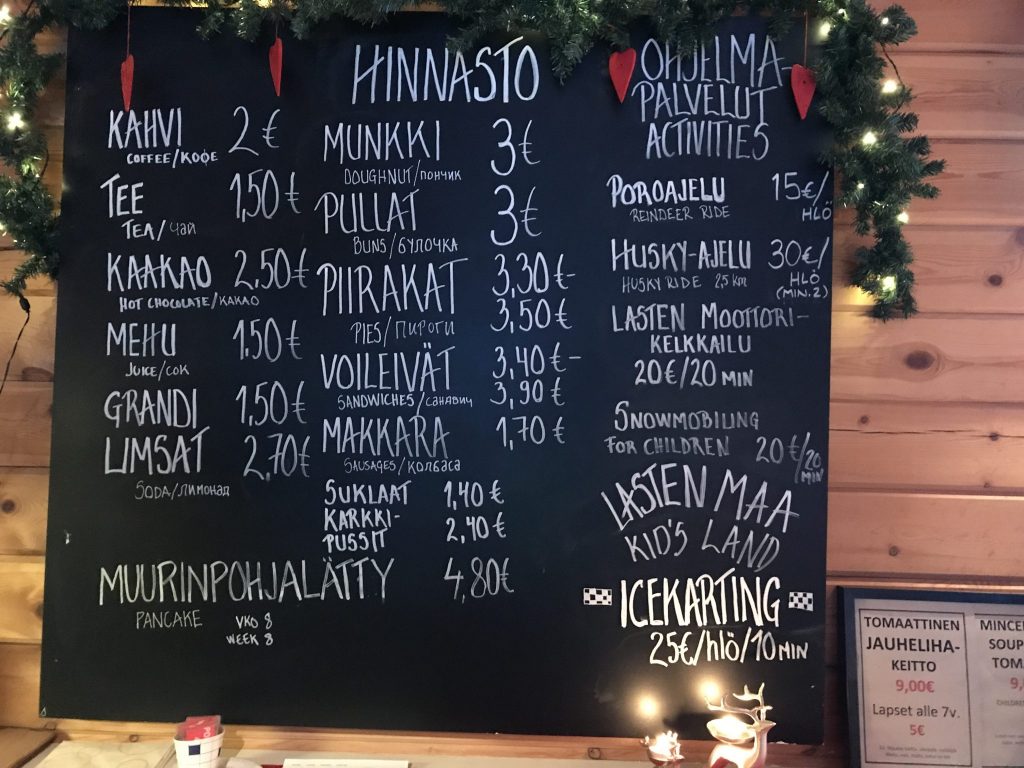 HINNASTO
KAHVI 2€
COFFEE/КОФЕ
TEE 1,50€
TEA/ЧАЙ
KAAKAO 2,50€
HOT CHOCOLATE/КАКАО
MEHU 1.50€
JUICE/СОК
GRANDI 1,50€
LIMSAT 2,70€
SODA/ЛИМОНАД
MUNKKI 3€
DOUGHNUT/ПОНЧИК
PULLAT 3€
BUNS/БУЛОЧКА
PIIRAKAT 3,30€-
3,50€
PIES/ПИРОГИ
VOILEIVÄT 3,40€-
3,90€
SANDWICHES/САНДВИЧ
MAKKARA 1,70€
SAUSAGES/КОЛБАСА
SUKLAAT 1,40€
KARKKI-
PUSSIT 2,40€
MUURINPOHJALÄTTY 4,80€
PANCAKE VKO 8
WEEK 8
OHJELMA-
PALVELUT
ACTIVITIES
POROAJELU 15€/
REINDEER RIDE HLÖ
HUSKY-AJELU 30€/
HUSKY RIDE 2,5 km HLÖ
(MIN.2)
LASTEN MOOTTORI-
KELKKAILU
20€/20 MIN
SNOWMOBILING
FOR CHILDREN 20€/20
MIN
LASTEN MAA
KID'S LAND
ICEKARTING
25€/hlö/10 MIN
TOMAATTINEN
JAUHELIHA-
KEITTO
9,00€
Lapset alle 7v.
5€
MINCE
SOUP
TOM
9,
CHILDRE